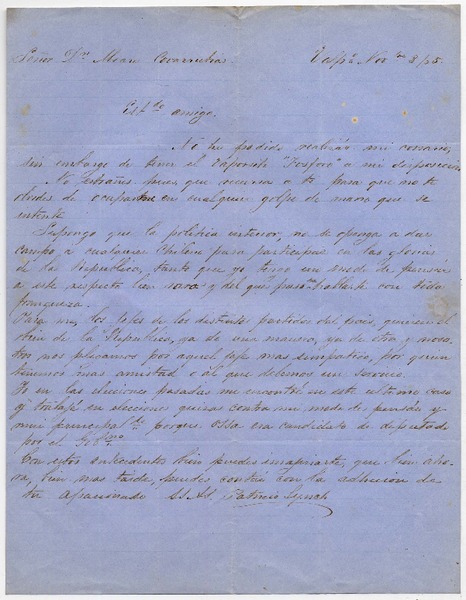 Señor Dn Alvaro Covarrubias. Valpo Nove 3/65.
Estdo amigo.
No he podido realizar mi comision,
sin embargo de tener el vaporcito "Fosforo" a mi disposicion
No estrañes pues, que recurra a ti para que no te
olvides de ocuparme en cualquier golpe de mano que se
intente.
Supongo que la politica interior, no se oponga a dar
campo a cualquier Chileno para participar en las glorias
de la Republica, tanto que yo tengo un modo de pensar
a este respecto bien raro y del que puedo hablarte con toda
franqueza.
Para mi, los jefes de los distintos partidos del pais, quieren el
bien de la Republica, ya de una manera, ya de otra, y noso-
tros nos plegamos por aquel jefe mas simpatico, por quien
tenemos mas amistad o al que debemos un servicio.
Yo en las elecciones pasadas me encontré en este ultimo caso
y trabajé en elecciones quizas contra mi modo de pensar y
mui principalte porque Ossa era candidato de diputado
por el Gobno
Con estos antecedentes bien puedes imajinarte, que bien aho-
ra, bien mas tarde, puedes contar con la adhesion de
tu apasionado S.S. Patricio Lynch